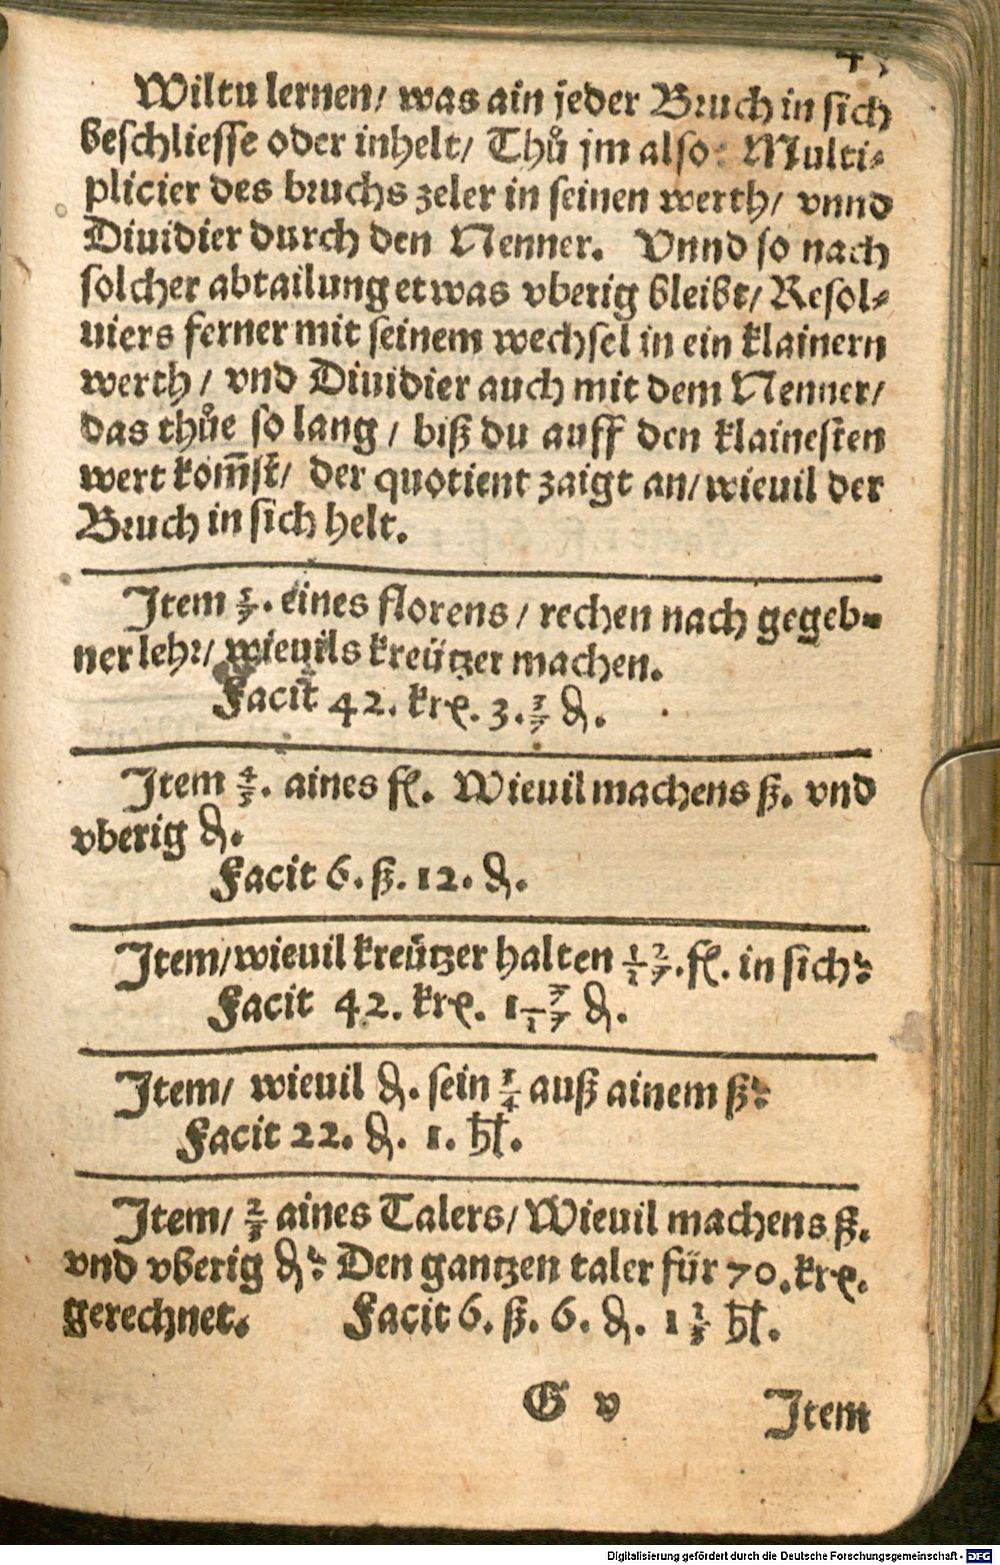 Wiltu lernen/ was ain jeder Bruch in sich
beschliesse oder inhelt/ Thů jm also: Multi⸗
plicier des bruchs zeler in seinen werth/ vnnd
Diuidier durch den Nenner. Vnnd so nach
solcher abtailung etwas vberig bleibt/ Resol⸗
uiers ferner mit seinem wechsel in ein klainern
werth/ vnd Diuidier auch mit dem Nenner/
das thůe so lang/ biß du auff den klainesten
wert kom̃st/ der quotient zaigt an/ wieuil der
Bruch in sich helt.
Item 5/7. eines florens/ rechen nach gegeb⸗
ner lehr/ wieuils kreützer machen.
Facit 42. krꝭ. 3. 3/7 ₰.
Item 4/5. aines fl. Wieuil machens ß. vnd
vberig ₰.
Facit 6. ß. 12. ₰.
Item/ wieuil kreützer halten 1/1 2/7. fl. in sich?
Facit 42. krꝭ. 1 7/17 ₰.
Item/ wieuil ₰. sein 3/4 auß ainem ß?
Facit 22. ₰. 1. hl.
Item/ 2/3 aines Talers/ Wieuil machens ß.
vnd vberig ₰? Den gantzen taler für 70. krꝭ.
gerechnet. Facit 6. ß. 6. ₰. 1 1/3 hl.
G v Item
Digitalisierung gefördert durch die Deutsche Forschungsgemeinschaft - DFG